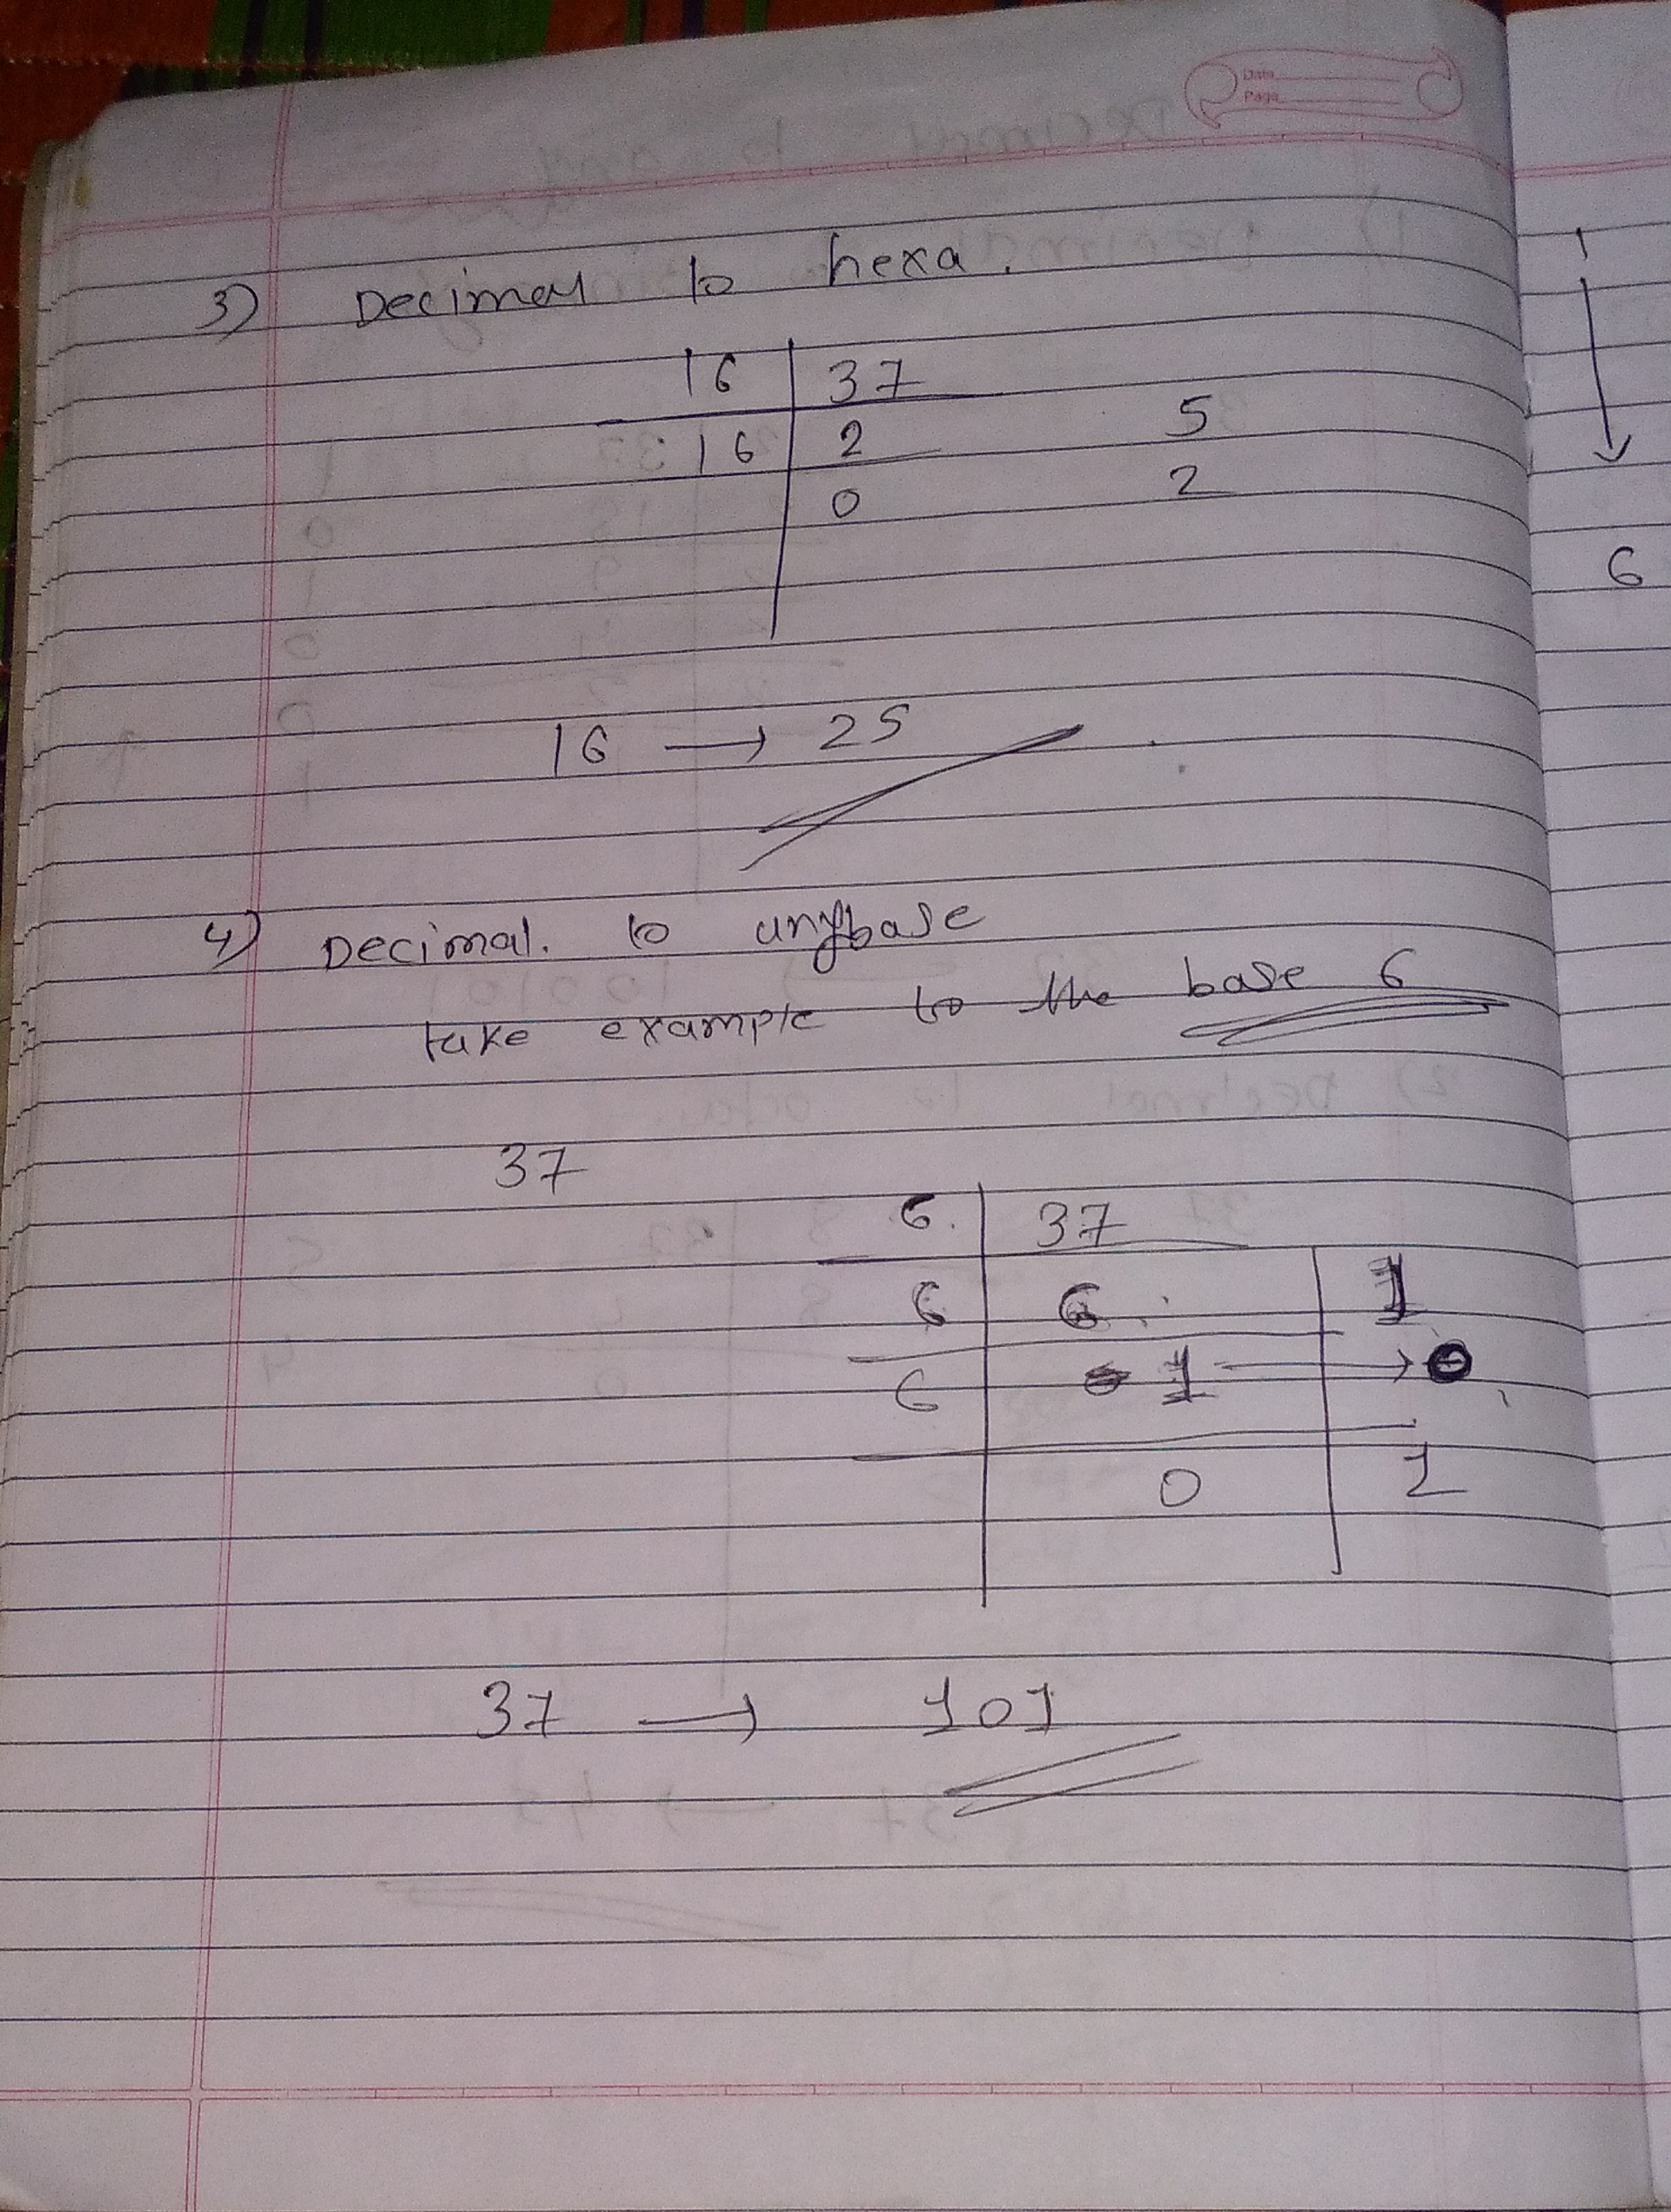 Date
Page
3) Decimal to hexa.
16 37
16 2 5
0 2
16 → 25
4) Decimal. to anybase
take example to the base 6
37
6. 37
6 6 1
6 1 → 0
0 1
37 → 101
6